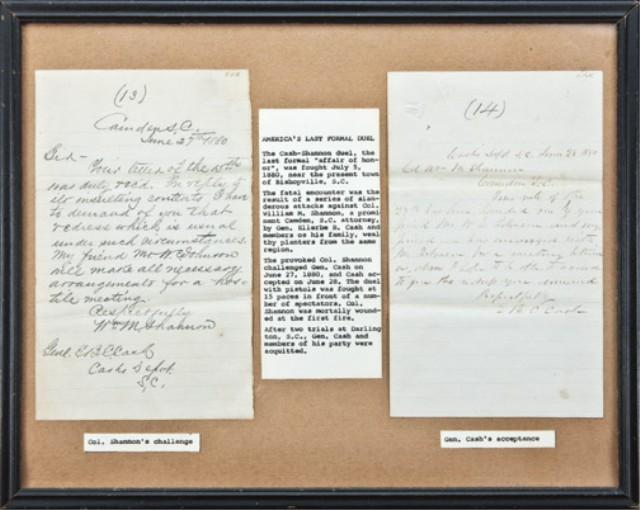 (13)
Camden S.C.
June 27th 1880
Genl -
Your letter of the 25th
was duly recd. In reply to
its insulting contents I have
to demand of you that
redress which is usual
under such circumstances.
My friend Mr W. E. Johnson
will make all necessary
arrangements for a hos-
tile meeting.
Respectfully
Wm M. Shannon
Genl. E B C Cash
Cash's Depot
S.C.
Col. Shannon's challenge
AMERICA'S LAST FORMAL DUEL
The Cash-Shannon duel, the
last formal "affair of hon-
or", was fought July 5,
1880, near the present town
of Bishopville, S.C.
The fatal encounter was the
result of a series of slan-
derous attacks against Col.
William M. Shannon, a promi-
nant Camden, S.C. attorney,
by Gen. Ellerbe B. Cash and
members os his family, weal-
thy planters from the same
region.
The provoked Col. Shannon
challenged Gen. Cash on
June 27, 1880, and Cash ac-
cepted on June 28. The duel
with pistols was fought at
15 paces in front of a num-
ber of spectators, Col.
Shannon was mortally wound-
ed at the first fire.
After two trials at Darling
ton, S.C., Gen. Cash and
members of his party were
acquitted.
(14)
Cash's Depot S.C. June 28 1880
Col Wm M Shannon
Camden S.C.
Your note of the
27th has been handed me by your
friend Mr W. E. Johnson and my
friend
Mr Johnson for a meeting
Respectfully
E B C Cash
Gen. Cash's acceptance